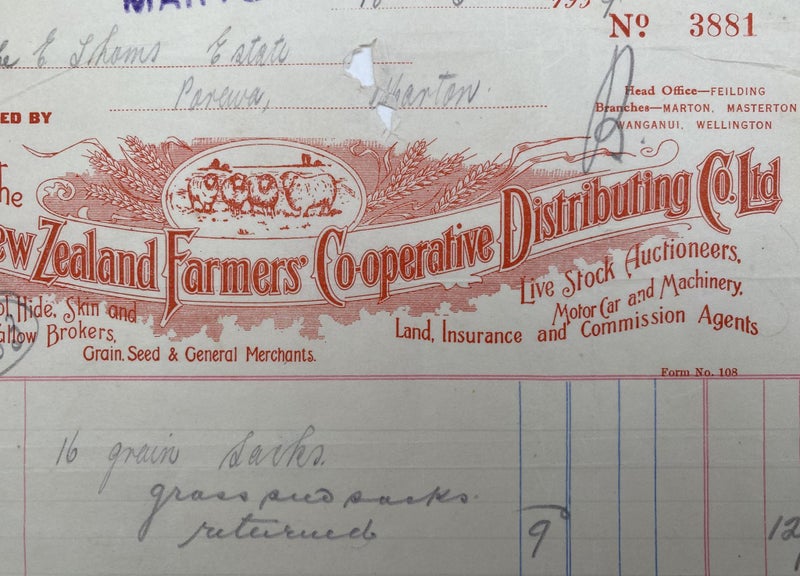 MART
193
Nº 3881
E Thoms Estate
Porewa, Marton.
Head Office—FEILDING
Branches—MARTON, MASTERTON
WANGANUI, WELLINGTON
ED BY
The
New Zealand Farmers' Co-operative Distributing Co. Ltd
Live Stock Auctioneers,
Hide, Skin and
Motor Car and Machinery,
Tallow Brokers,
Land, Insurance and Commission Agents
Grain. Seed & General Merchants.
Form No. 108
16 grain sacks.
grass seed sacks.
returned 9 12